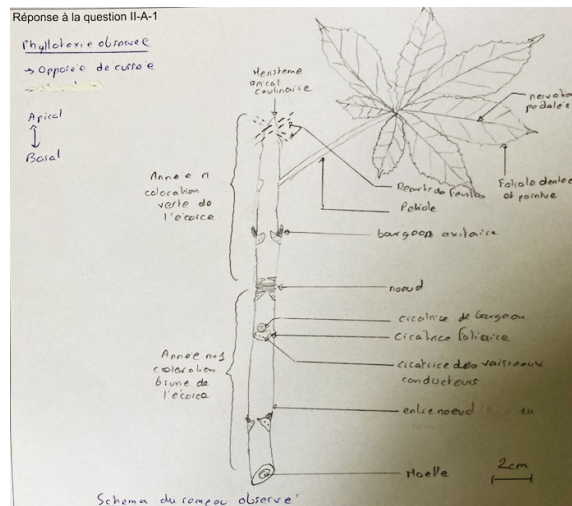 Réponse à la question II-A-1
Phyllotaxie observée
→ opposée decussée
Apical
Basal
Meristème
apical
caulinaire
nervation
pedalée
Foliole dentée
et pointue
Départ de feuilles
Petiole
Année n
coloration
verte de
l'écorce
bourgeon axilaire
noeud
cicatrice de bourgeon
cicatrice foliaire
cicatrice des vaisseaux
conducteurs
Année n-1
coloration
brune de
l'écorce
entrenoeud
Moelle
2cm
Schema du rameau observé